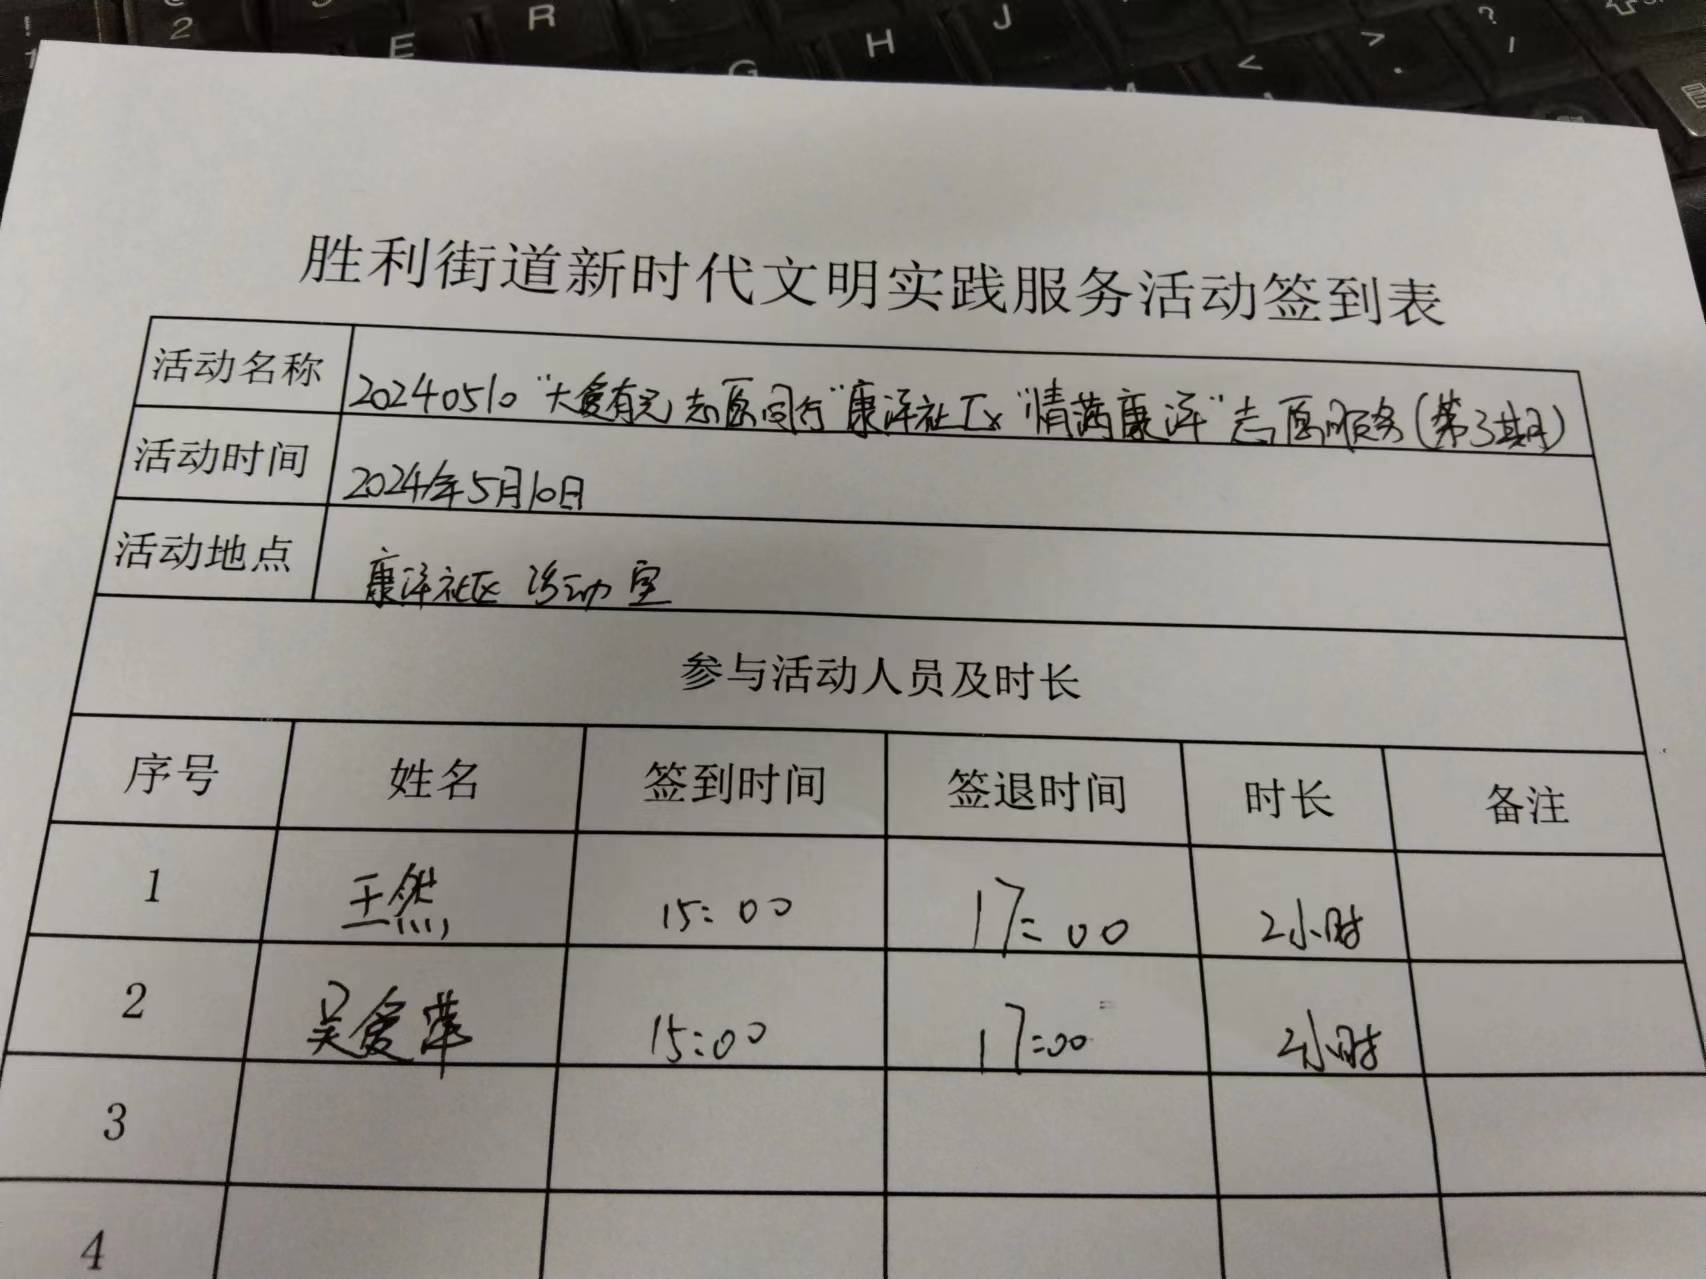 胜利街道新时代文明实践服务活动签到表
活动名称 20240510 "大爱有元 志愿同行" 康泽社区 "情满康泽" 志愿服务(第3期)
活动时间 2024年5月10日
活动地点 康泽社区 活动室
参与活动人员及时长
序号 姓名 签到时间 签退时间 时长 备注
1 王然 15:00 17:00 2小时
2 吴爱萍 15:00 17:00 2小时
3
4